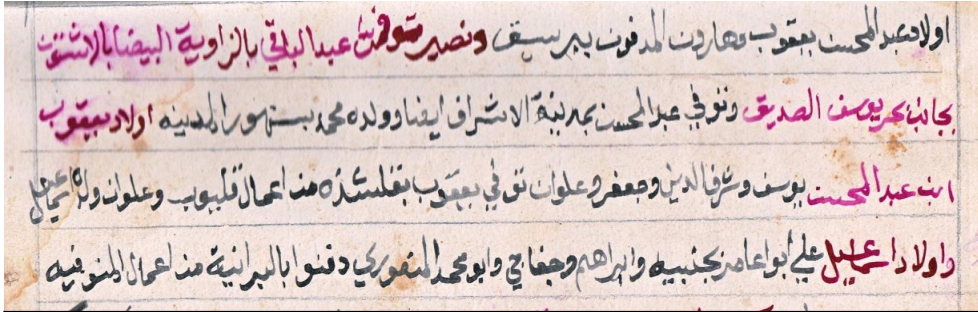 اولاد عبد المحسن يعقوب وهارون المدفون ببرسيق ونصير متوفى عبد الباقي بالزاوية البيضا بالاشتقت
بجانب بحر يوسف الصديق وتوفي عبد المحسن بمدينة الاشراف ايضا وولده محمد بسنهور المدينه اولاد يعقوب
ابن عبد المحسن يوسف وشرف الدين وجعفر وعلوان توفي يعقوب بقلقشنده من اعمال قليوب وعلوان ولده اسماعيل
واولاد اسماعيل علي أبو اعامر بجنبيه وابراهيم وخفاجي وابو محمد المنصوري دفنوا بالبرانية من اعمال المنوفيه